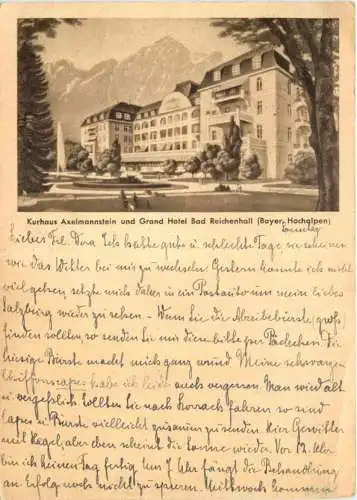 Kurhaus Axelmannstein und Grand Hotel Bad Reichenhall (Bayer. Hochalpen)
Sonntag
Liebes Frl. Dora Ich hatte gute u schlechte Tage, sie scheinen
wie das Wetter bei mir zu wechseln. Gestern konnte ich nicht
viel gehen, setzte mich daher in ein Postauto um mein liebes
Salzburg wieder zu sehen – Wenn Sie die Abreibebürste
finden sollten, so senden Sie mir diese bitte per Päckchen. Die
hiesige Bürste macht mich ganz wund. Meine schwarzen
habe ich leider auch vergessen. Man wird alt
u vergesslich. Sollten Sie nach fahren so sind
u Bürste vielleicht zusammen zu senden. Hier Gewitter
und Regel, aber eben scheint die Sonne wieder. Vor 12 Uhr
bin ich keinen Tag fertig. Um 8 Uhr fängt die Behandlung
an Erfolg noch nicht zu spüren. Mittwoch kommen